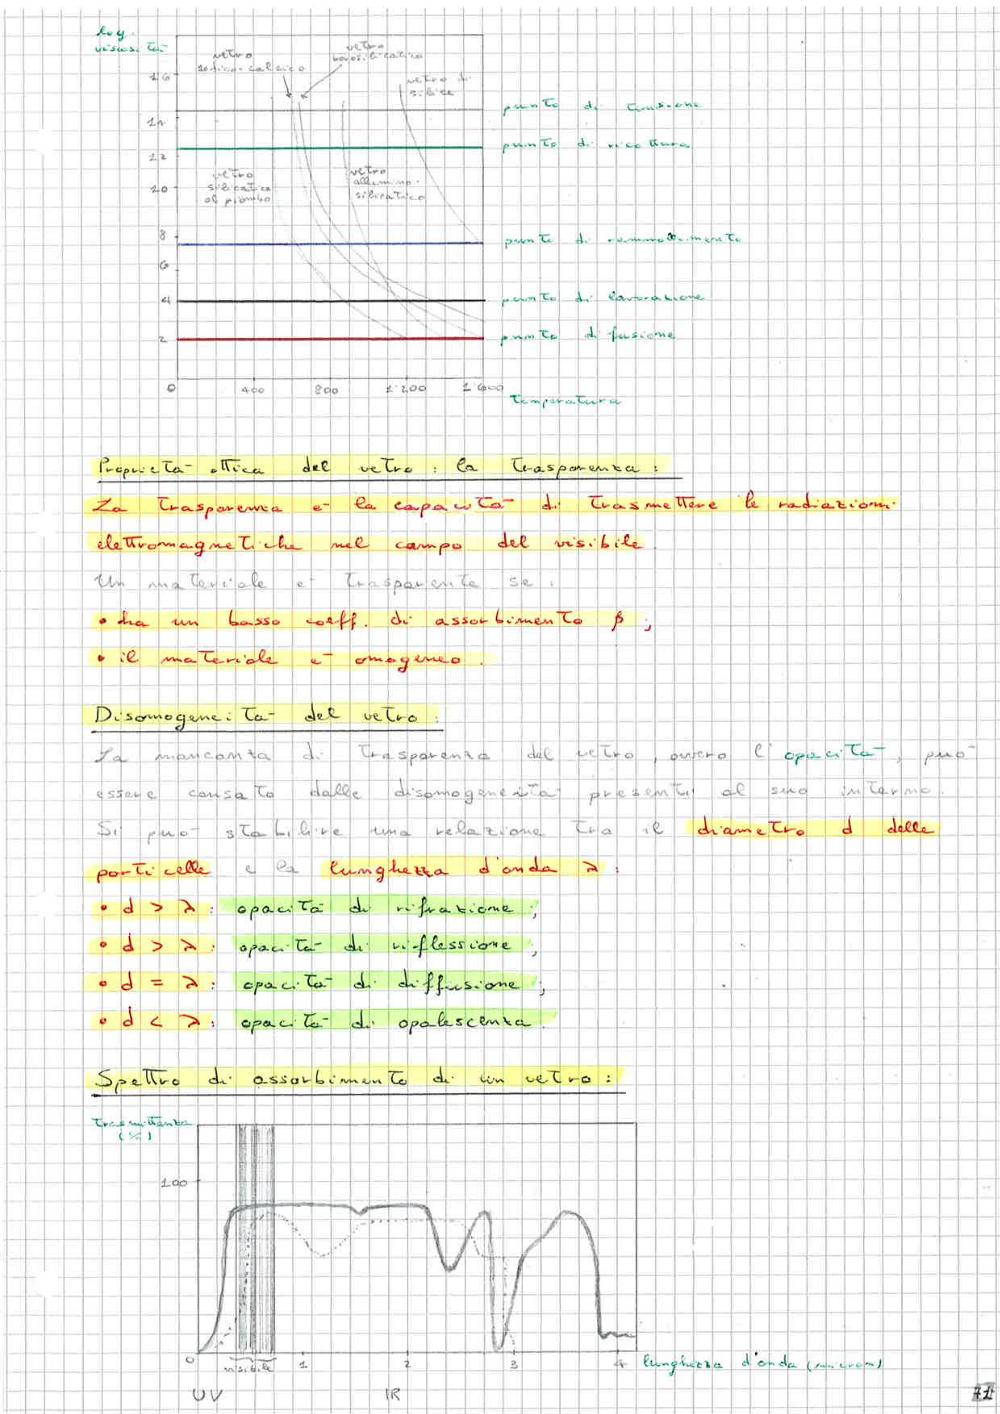 log.
viscosità
vetro
sodico-calcico
vetro
borosilicatico
vetro di
silice
16
14
12
10
8
6
4
2
0
punto di tensione
punto di ricottura
vetro
silicatico
al piombo
vetro
allumino-
silicatico
punto di rammollimento
punto di lavorazione
punto di fusione
400
800
1'200
1'600
temperatura
Proprietà ottica del vetro: la trasparenza:
La trasparenza è la capacità di trasmettere le radiazioni
elettromagnetiche nel campo del visibile
Un materiale è trasparente se:
• ha un basso coeff. di assorbimento β;
• il materiale è omogeneo.
Disomogeneità del vetro:
La mancanza di trasparenza del vetro, ovvero l'opacità, può
essere causata dalle disomogeneità presenti al suo interno.
Si può stabilire una relazione tra il diametro d delle
particelle e la lunghezza d'onda λ:
• d > λ: opacità di rifrazione;
• d > λ: opacità di riflessione;
• d = λ: opacità di diffusione;
• d < λ: opacità di opalescenza.
Spettro di assorbimento di un vetro:
trasmittanza
(%)
100
0
visibile
1
2
3
4
lunghezza d'onda (micron)
UV
IR